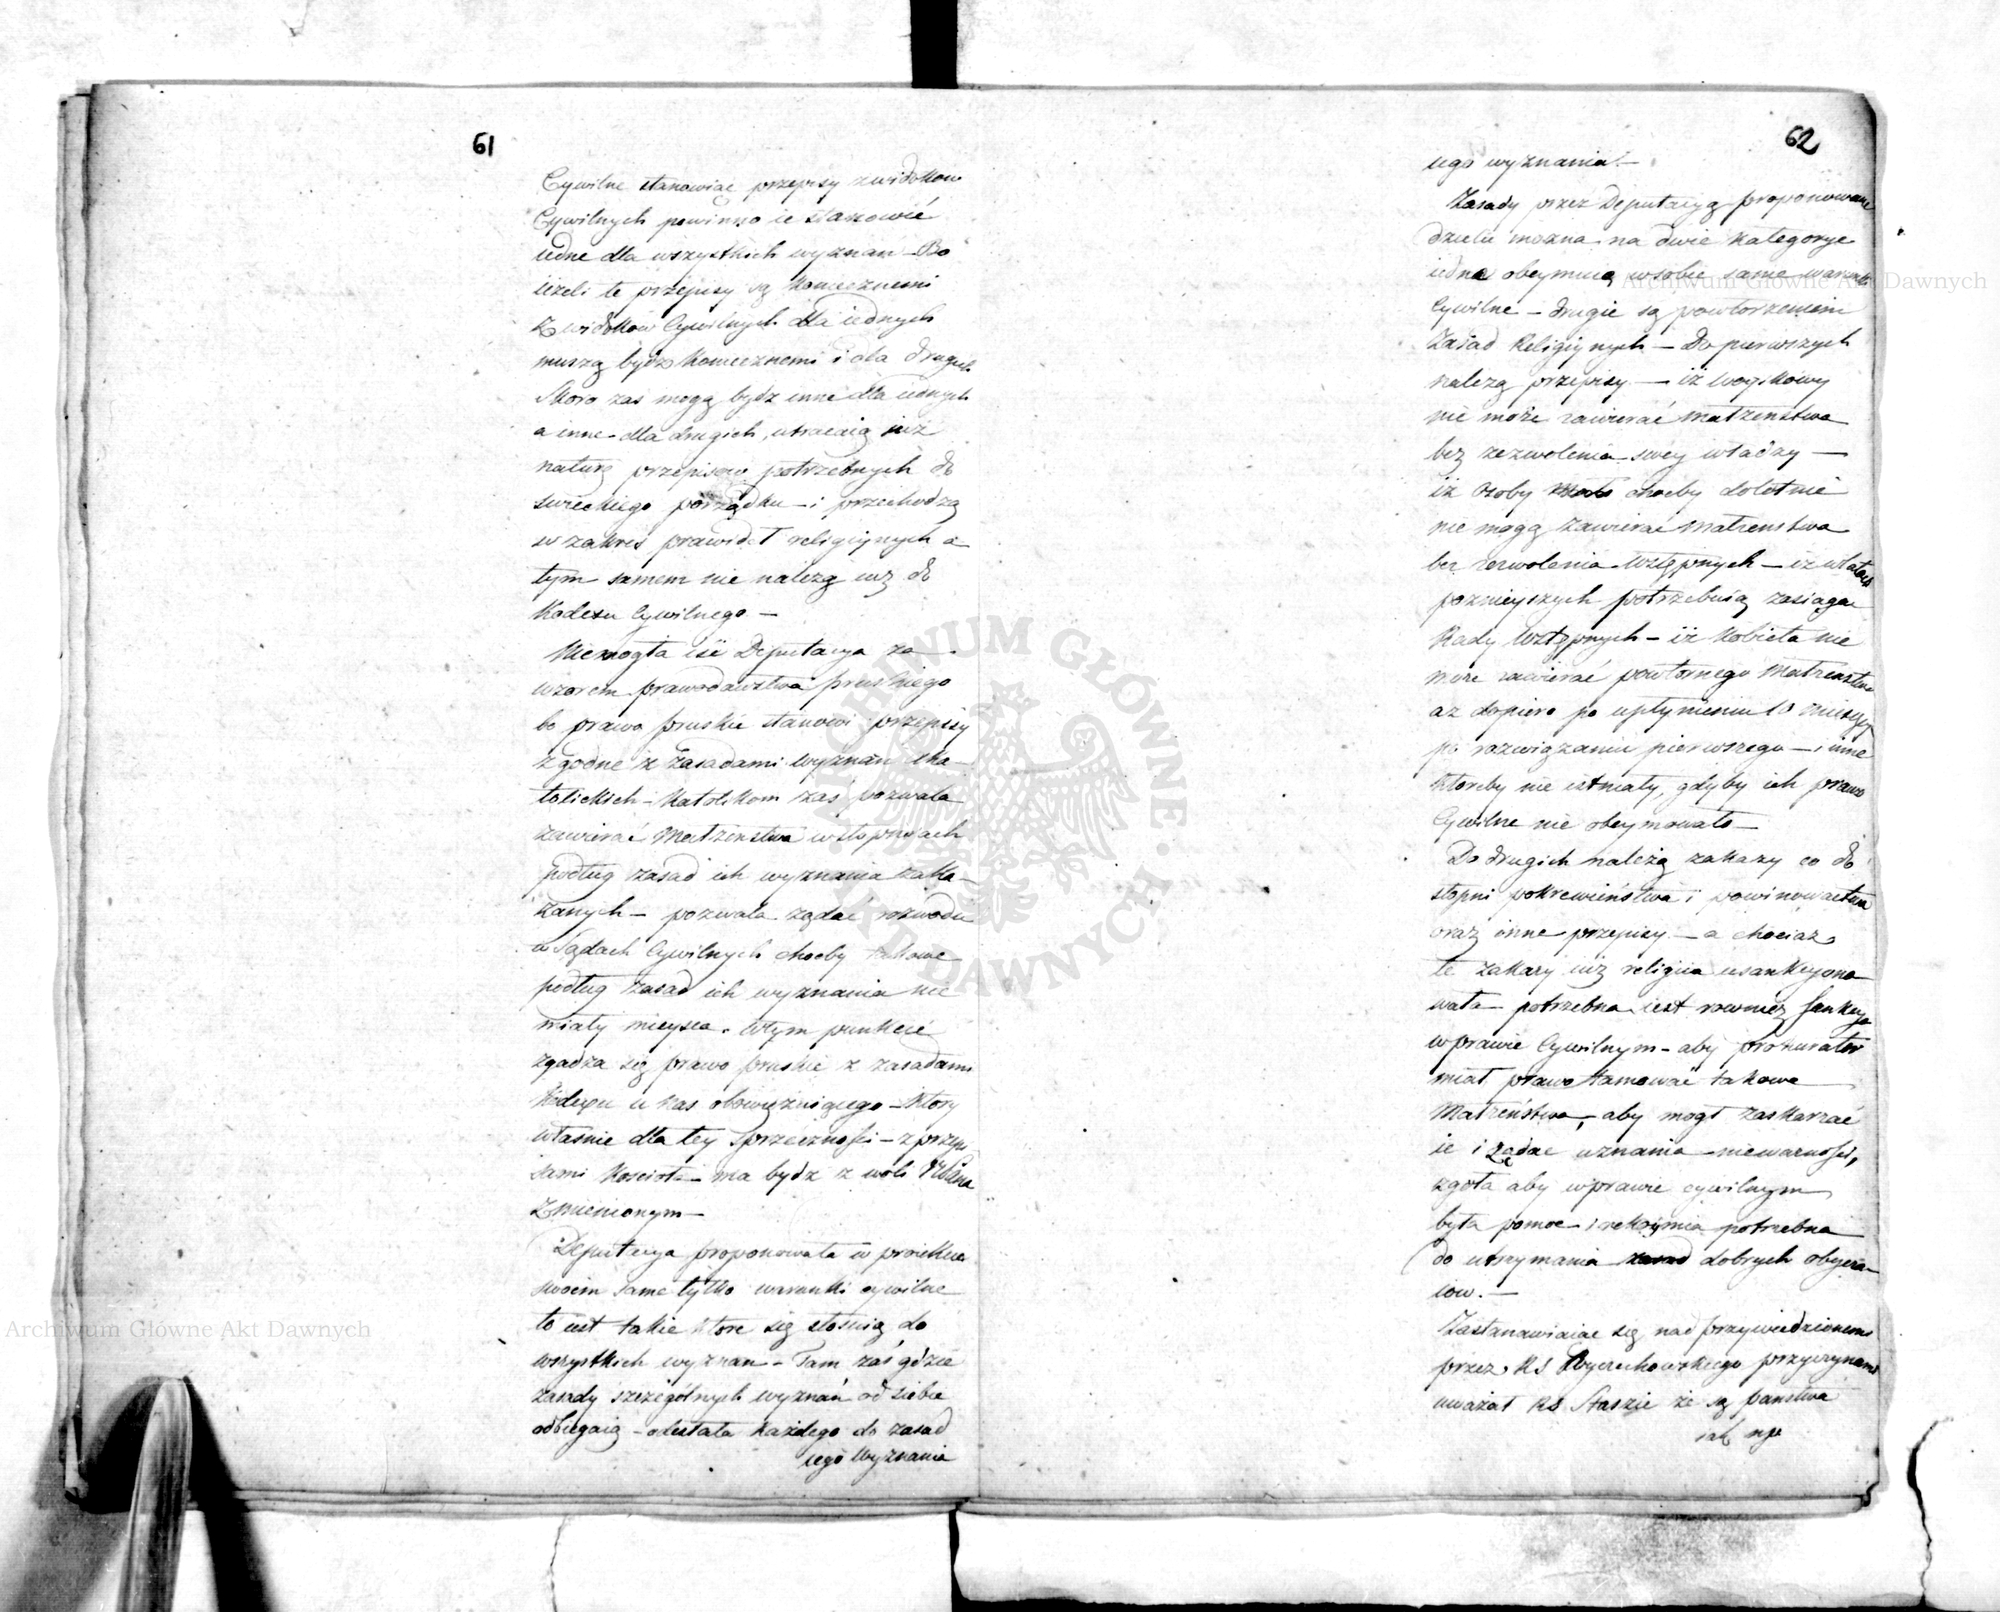 61
Cywilne stanowiąc przepisy z widokow
Cywilnych powinno ie stanowić
iedne dla wszystkich wyznan – Bo
ieżeli te przepisy są koniecznemi
Z widoków Cywilnych dla iednych
muszą bydz koniecznemi i dla drugich
Skoro zas mogą bydz inne dla iednych
a inne dla drugich, utracaią iuż
naturę przepisow potrzebnych do
swieckiego porządku – i przechodzą
w zakres prawideł religiynych a
tym samem nie należą iuz do
Kodexu Cywilnego. –
Niemogła iść Deputacya za
wzorem prawodawztwa pruskiego
bo prawo pruskie stanowi przepisy
zgodne z zasadami wyznań aka-
tolickich – Katolikom zaś pozwala
zawierać Małżenstwa w stopniach
podług zasad ich wyznania zaka-
zanych – pozwala żądać rozwodu
w Sądach Cywilnych choćby takowe
podług zasad ich wyznania nie
miały mieysca. Wtym punkcie
zgadza się prawo pruskie z zasadami
Kodexu u nas obowięzuiącego – ktory
własnie dla tey sprzeczności – z przepi
sami Kościoła – ma bydz z woli Pana
Zmienionym –
Deputacya proponowała w proiekcie
swoim same tylko warunki cywilne
to iest takie ktore się stosuią do
wszystkich wyznan – Tam zaś gdzie
zasady szczególnych wyznań od siebie
odbiegaią – odesłała każdego do zasad
iego Wyznania
62
iego wyznania. –
Zasady przez Deputacyą proponowane
dzielic można na dwie kategorye
iedne obeymuią w sobie same warunki
Cywilne – drugie są powtorzeniem
Zasad Religiynych – Do pierwszych
należą przepisy – iż woyskowy
nie może zawierać małżenstwa
bez zezwolenia swey władzy –
iż Osoby choćby doletnie
nie mogą zawierać małżenstwa
bez zezwolenia Wstępnych – iż w latach
poznieyszych potrzebuią zasięgac
Rady Wstępnych – iż kobieta nie
może zawierać powtornego Małżenstwa
aż dopiero po upłynieniu 10 miesięcy
po rozwiązaniu pierwszego – i inne
ktoreby nie istniały, gdyby ich prawo
Cywilne nie obeymowało –
Do drugich należą zakazy co do
stopni pokrewieństwa i powinowactwa
oraz inne przepisy – a chociaż
te zakazy iuż religiia usankcyono-
wała potrzebna iest rownież Sankcya
w prawie Cywilnym – aby prokurator
miał prawo tamować takowe
Małżeństwa, – aby mogł zaskarżać
ie i żądac uznania nieważności,
zgoła aby w prawie cywilnym
była pomoc i rękoymia potrzebna
do utrzymania dobrych obycza-
iow. –
Zastanawiaiąc się nad przywiedzionemi
przez KS Woyciechowskiego przyczynami
uważał KS Staszic że są panstwa
iak np
Archiwum Główne Akt Dawnych
Archiwum Główne Akt Dawnych
ARCHIWUM GŁÓWNE AKT DAWNYCH